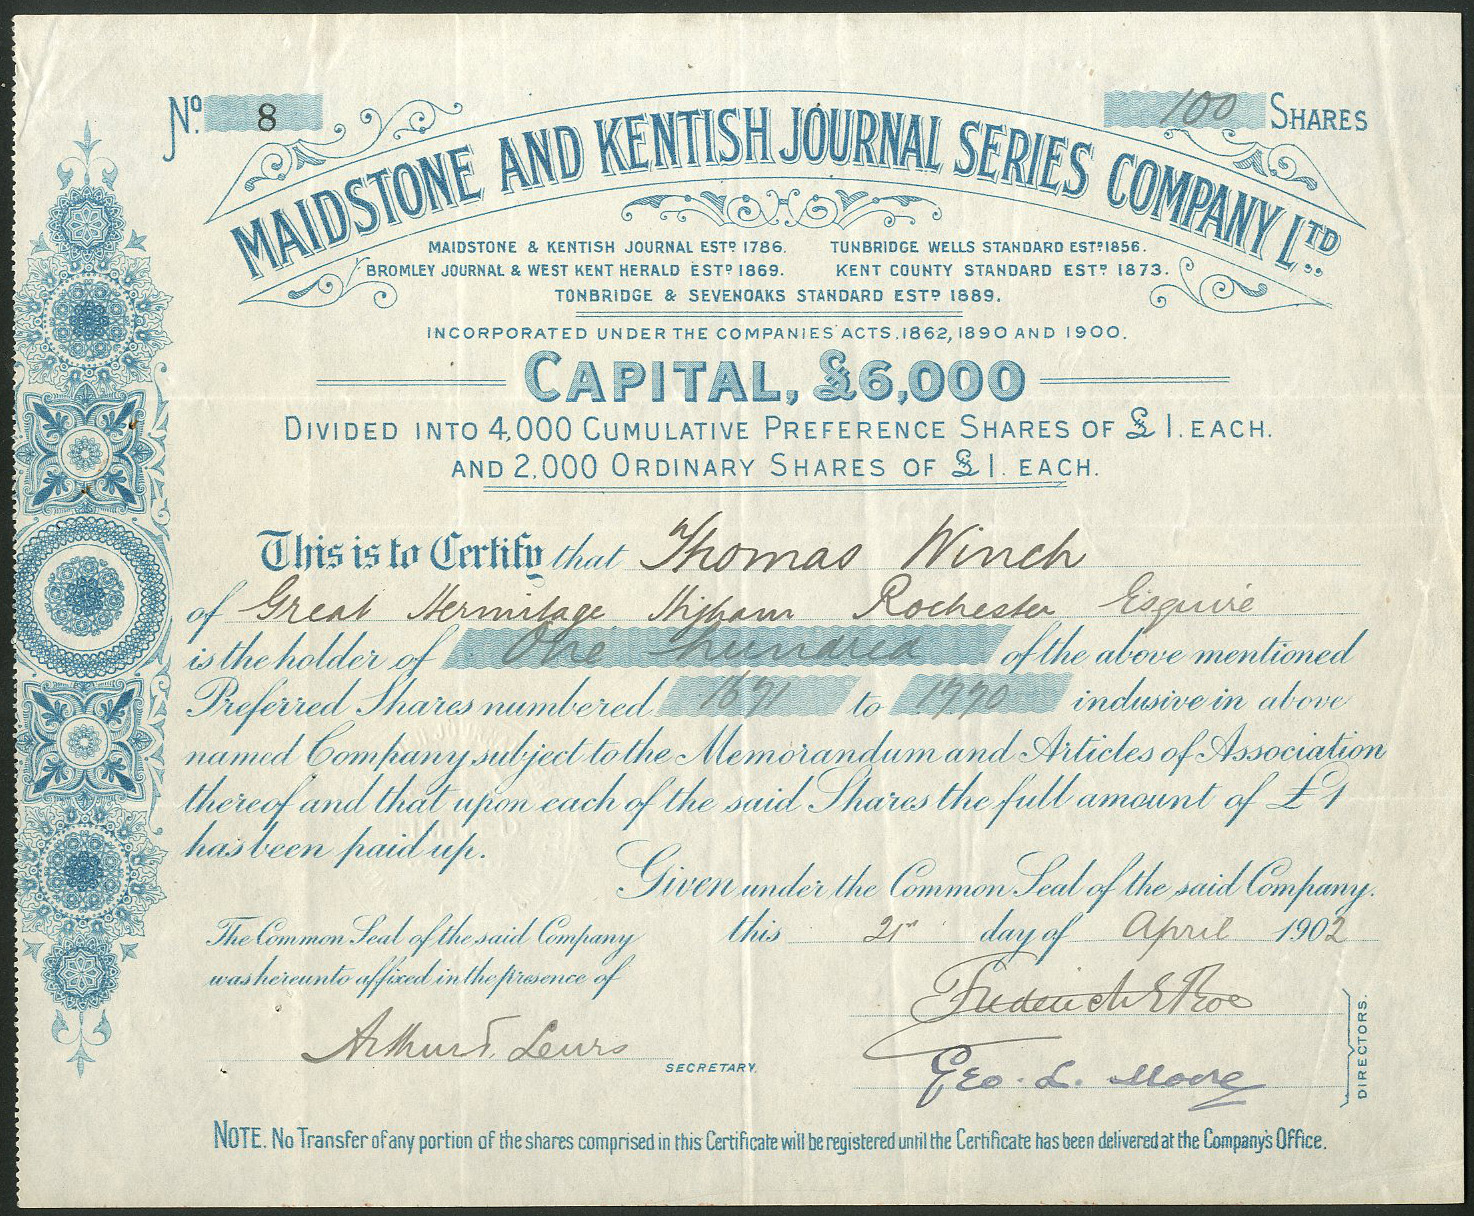 No. 8
100 SHARES
MAIDSTONE AND KENTISH JOURNAL SERIES COMPANY LTD.,
MAIDSTONE & KENTISH JOURNAL ESTD 1786. TUNBRIDGE WELLS STANDARD ESTD 1856.
BROMLEY JOURNAL & WEST KENT HERALD ESTD 1869. KENT COUNTY STANDARD ESTD 1873.
TONBRIDGE & SEVENOAKS STANDARD ESTD 1889.
INCORPORATED UNDER THE COMPANIES' ACTS. 1862, 1890 AND 1900.
CAPITAL, £6,000
DIVIDED INTO 4,000 CUMULATIVE PREFERENCE SHARES OF £1. EACH.
AND 2,000 ORDINARY SHARES OF £1. EACH.
This is to Certify that Thomas Winch
of Great Hermitage Higham Rochester Esquire
is the holder of One hundred of the above mentioned
Preferred Shares numbered 1671 to 1770 inclusive in above
named Company subject to the Memorandum and Articles of Association
thereof and that upon each of the said Shares the full amount of £1
has been paid up.
Given under the Common Seal of the said Company.
this 21st day of April 1902
The Common Seal of the said Company
was hereunto affixed in the presence of
Frederick E Roe
Arthur T. Lewis
SECRETARY.
Geo. L. Moore
DIRECTORS.
NOTE. No Transfer of any portion of the shares comprised in this Certificate will be registered until the Certificate has been delivered at the Company's Office.